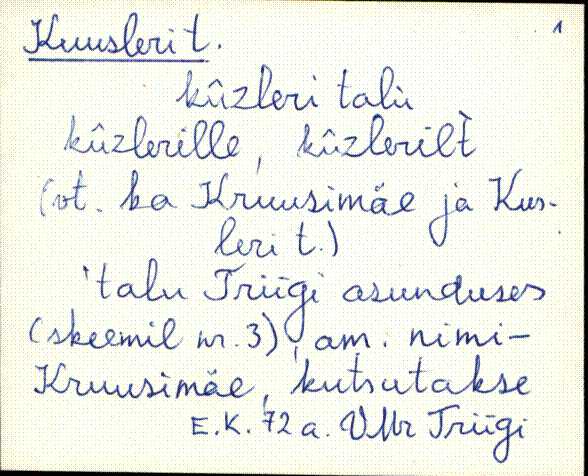 1
Kuusleri t.
kûzleri talù
kûzlerille, kûzlerilt̀
(vt. ka Kruusimäe ja Kus-
leri t.)
'talu Triigi asunduses
(skeemil nr. 3), am. nimi-
Kruusimäe, kutsutakse
E.K. 72 a. VMr Triigi